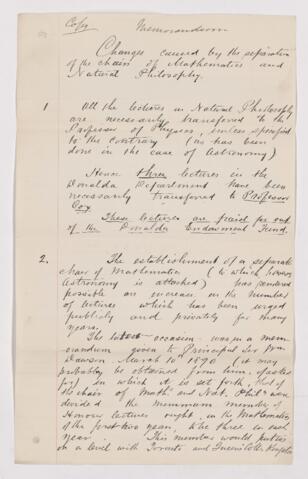 Copy
Memorandum
Changes caused by the separation
of the chairs of Mathematics and
Natural Philosophy.
1 All the lectures in Natural Philosophy
are necessarily transferred to the
Professor of Physics, unless specified
to the contrary (as has been
done in the case of Astronomy)
Hence three lectures in the
Donalda Department have been
necessarily transferred to Professor
Cox.
These lectures are paid for out
of the Donalda Endowment Fund.
2. The establishment of a separate
chair of Mathematics (to which however
Astronomy is attached) has rendered
possible an increase in the number
of lectures which has been urged
publicly and privately for many
years.
The latest occasion was in a mem-
orandum given to Principal Sir Wm
Dawson, March 10th 1890 (it may
probably be obtained from him, if asked
for) in which it is set forth, that if
the chair of Math. and Nat. Phil. were
divided the minimum number of
Honour lectures ought, in the Mathematics
of the first two years, to be three in each
year. This number would put us
on a level with Toronto and Queen's Coll. Kingston